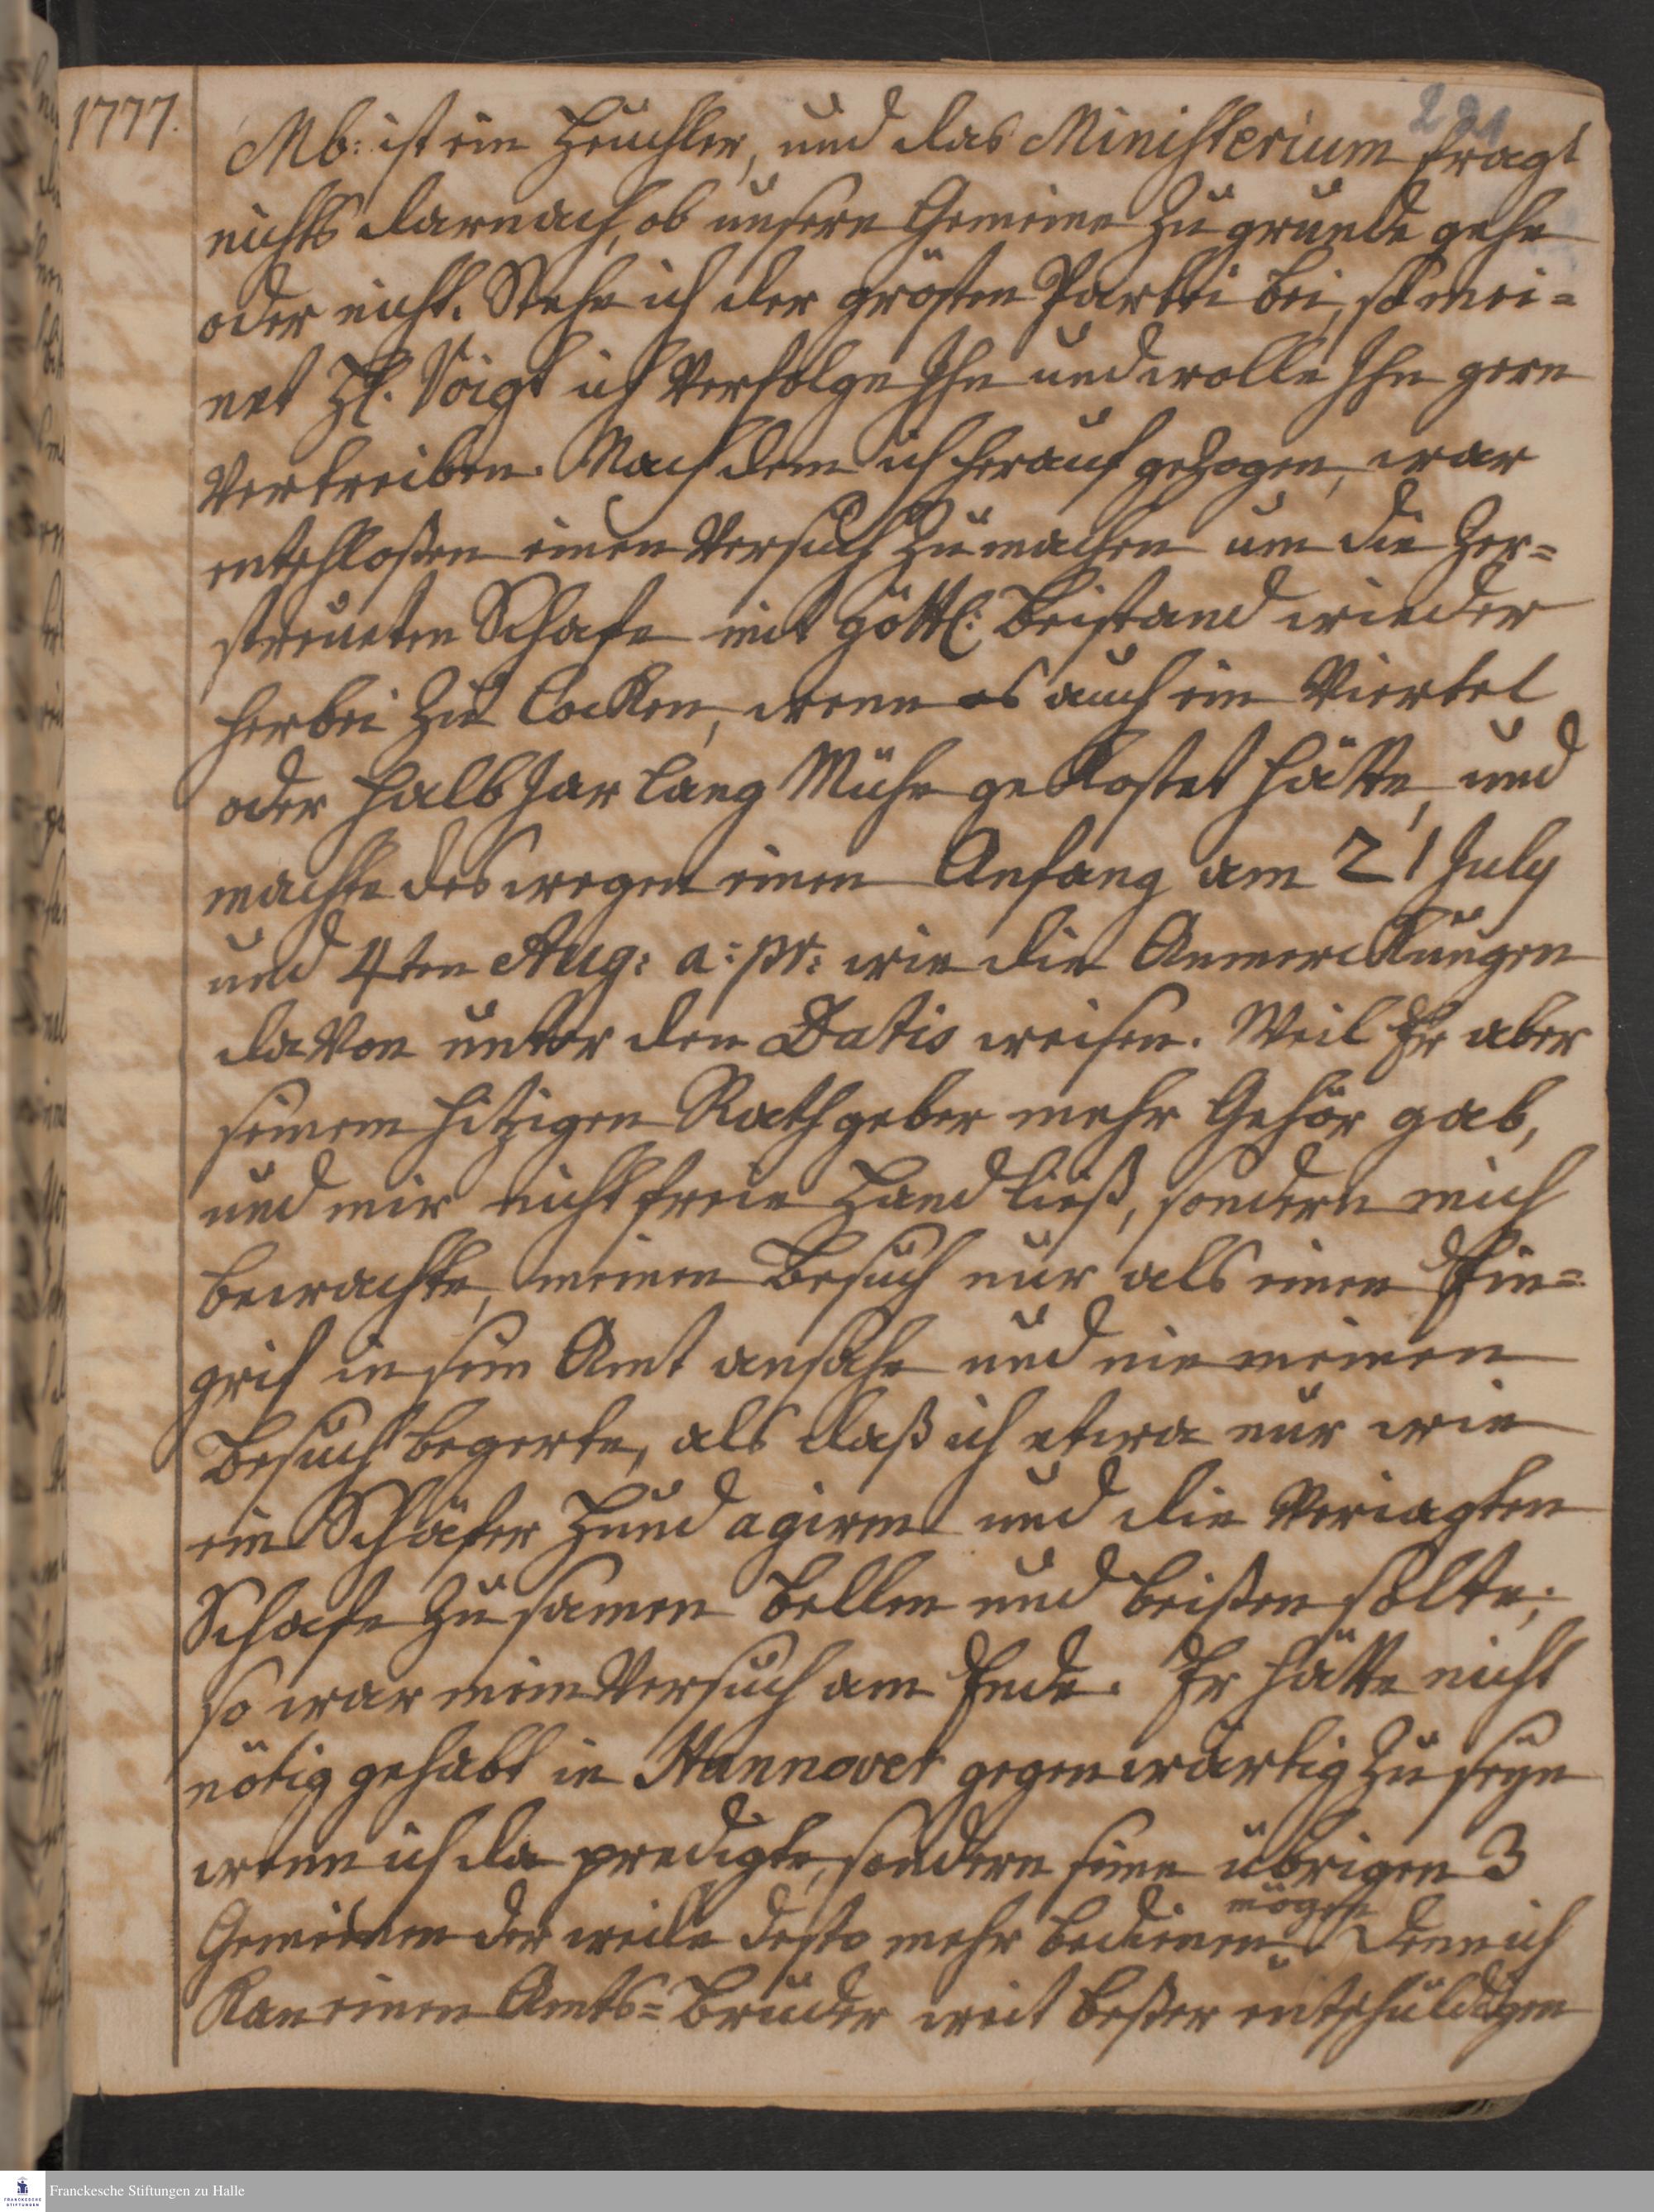 1777.
221
Mb: ist ein Heuchler, und das Ministerium fragt
nichts darnach, ob unsere Gemeine zu grunde gehe
oder nicht. Stehe ich der grösten Parthei bei, so mei=
net H. Voigt ich verfolge Ihn und wolle Ihn gern
vertreiben. Nach dem ich herauf gezogen, war
entschloßen einen Versuch zu machen um die Zer=
streueten Schafe mit göttl: Beistand wieder
herbei zu locken, wenn es auch ein Viertel
oder halb Jar lang Mühe gekostet hätte, und
machte deswegen einen Anfang am 21 July
und 4ten Aug: a: pr: wie die Anmerckungen
davon unter den Datis weisen. Weil Er aber
seinem hitzigen Rathgeber mehr Gehör gab,
und mir nicht freie Hand ließ, sondern mich
bewachte, meinen Besuch nur als einen Ein=
grif in sein Amt ansahe und nie meinen
Besuch begerte, als daß ich etwa nur wie
ein Schäfer Hund agiren und die Veriagten
Schafe zusamen bellen und beißen solte;
so war mein Versuch am Ende. Er hätte nicht
nötig gehabt in Hannover gegenwärtig zu seyn
wenn ich da predigte, sondern seine übrigen 3
Gemeinen der weile desto mehr bedienen mögen. Denn ich
kan einen Amts=Bruder weit beßer entschuldigen
Franckesche Stiftungen zu Halle